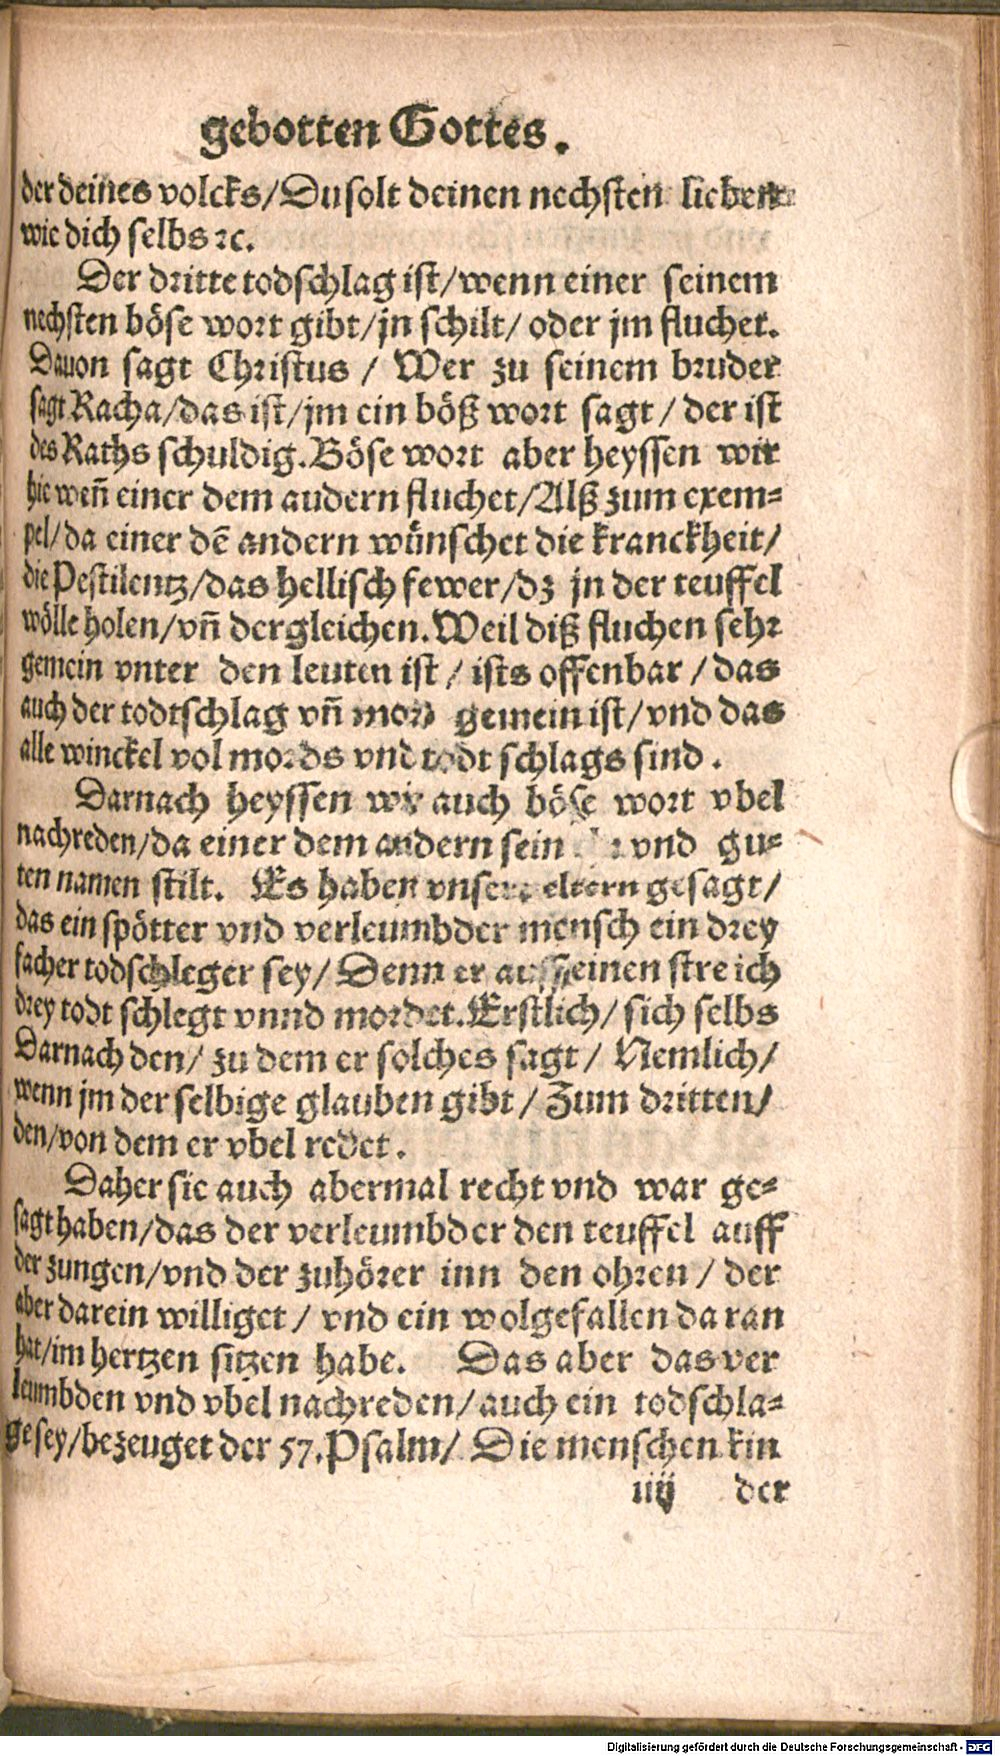 gebotten Gottes.
der deines volcks/Du solt deinen nechsten lieben
wie dich selbs ꝛc.
Der dritte todschlag ist/wenn einer seinem
nechsten böse wort gibt/jn schilt/ oder jm fluchet.
Dauon sagt Christus / Wer zu seinem bruder
sagt Racha/das ist/jm ein böß wort sagt/ der ist
des Raths schuldig. Böse wort aber heyssen wir
hie weñ einer dem andern fluchet/Alß zum exem-
pel/da einer dē andern wünschet die kranckheit/
die Pestilentz/das hellisch fewer/dz jn der teuffel
wölle holen/vñ dergleichen. Weil diß fluchen sehr
gemein vnter den leuten ist / ists offenbar / das
auch der todtschlag vñ mord gemein ist/vnd das
alle winckel vol mords vnd todt schlags sind.
Darnach heyssen wir auch böse wort vbel
nachreden/da einer dem andern sein vnd gu-
ten namen stilt. Es haben vnsere eltern gesagt/
das ein spötter vnd verleumbder mensch ein drey
facher todschleger sey/ Denn er auff einen streich
drey todt schlegt vnnd mordet. Erstlich/ sich selbs
Darnach den/ zu dem er solches sagt/ Nemlich/
wenn jm der selbige glauben gibt / Zum dritten/
den/von dem er vbel redet.
Daher sie auch abermal recht vnd war ge-
sagt haben/das der verleumbder den teuffel auff
der zungen/vnd der zuhörer inn den ohren / der
aber darein williget / vnd ein wolgefallen da ran
hat/im hertzen sitzen habe. Das aber das ver
leumbden vnd vbel nachreden/auch ein todschla-
ge sey/bezeuget der 57. Psalm/ Die menschen kin
iiij der
Digitalisierung gefördert durch die Deutsche Forschungsgemeinschaft - DFG